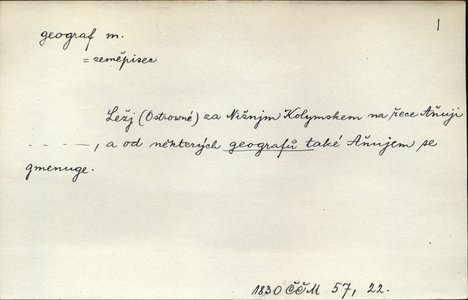 1
geograf m.
= zeměpisec
Ležj (Ostrowné) za Nižnjm Kolymskem na řece Aňuji
– – – –, a od některých geografů také Aňujem se
gmenuge.
1830 ČČM 57, 22.